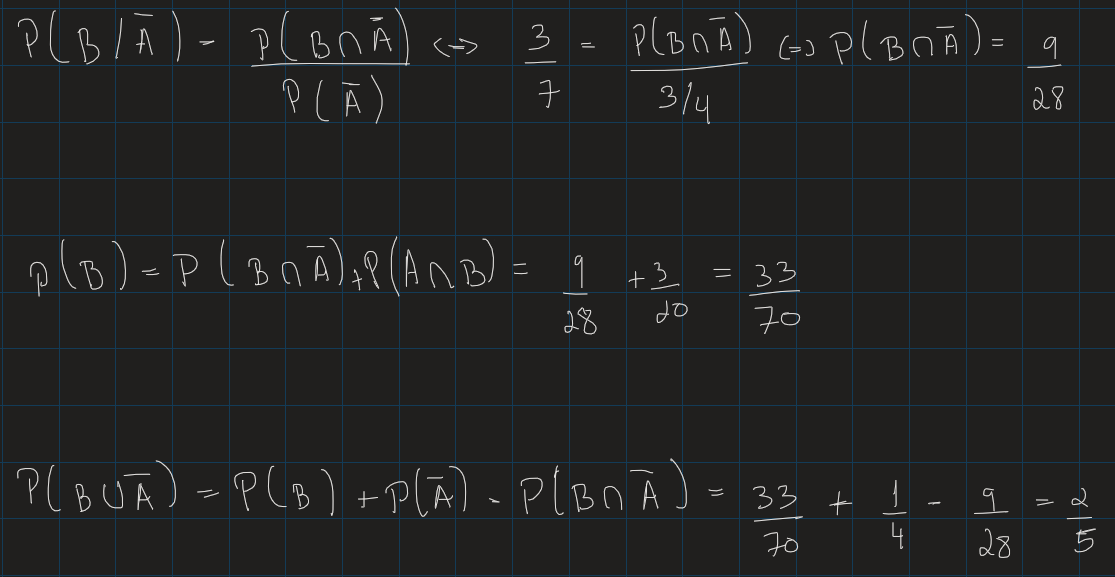 P(B/Ā) = P(B∩Ā)/P(Ā) <=> 3/7 = P(B∩Ā)/(3/4) <=> P(B∩Ā) = 9/28
P(B) = P(B∩Ā) + P(A∩B) = 9/28 + 3/20 = 33/70
P(B∪Ā) = P(B) + P(Ā) - P(B∩Ā) = 33/70 + 1/4 - 9/28 = 2/5